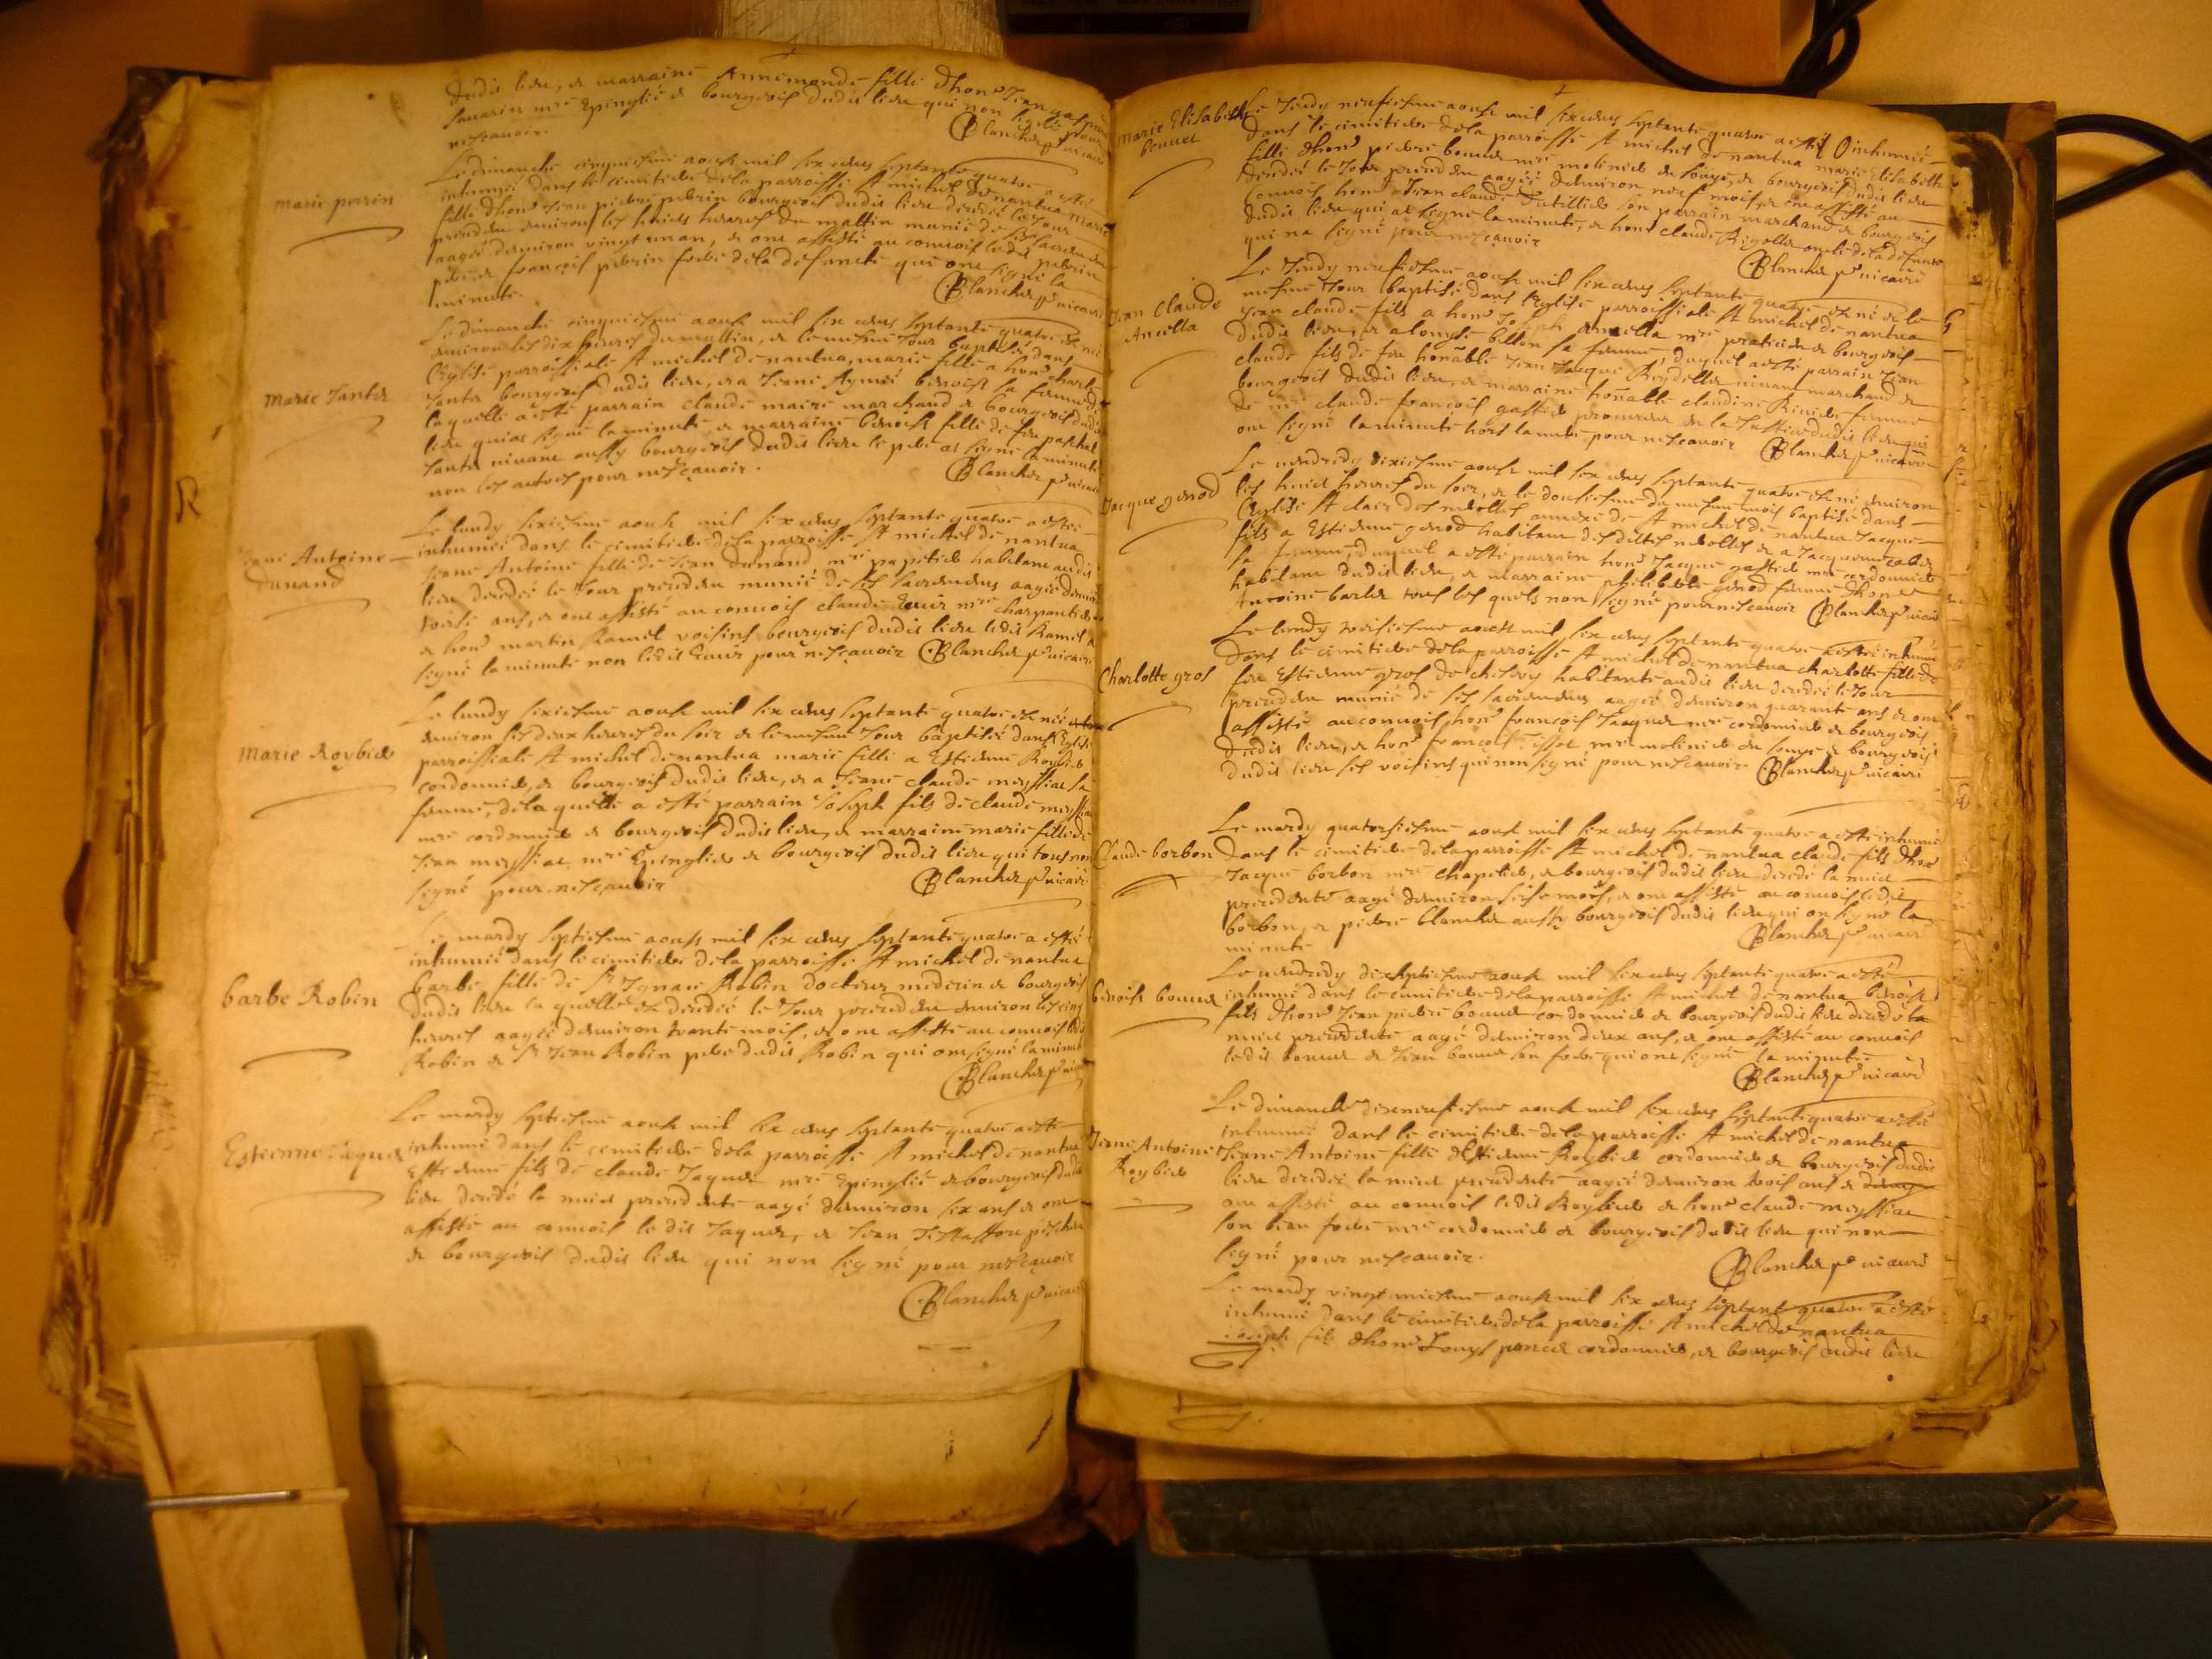 dudit lieu, et marraine Annemonde fille dhon
mre Epinglié et bourgeois dudit lieu qui non signé pour
nescavoir.
Blanchet pr vicaire
marie perrin
Le dimanche cinquiesme aoust mil six cens septante quatre a esté
inhumée dans le cimitiere dela parroisse St michel de nantua marie
fille dhon Jean piere perrin bourgeois dudit lieu decedée le Jour
precedent environ les huict heures du mattin munie de ses sacremens
aagée denviron vingt un an, et ont assisté au convois ledit perrin
pere et françois perrin frere dela defuncte qui ont signé la
minute.
Blanchet pr vicaire
marie Jantet
Le dimanche cinquiesme aoust mil six cens septante quatre est née
environ les dix heures du mattin, et le mesme Jour baptisée dans
lEglise parroissiale St michel de nantua, marie fille a hon charle
Jantet bourgeois dudit lieu, et a Jeane Aymée benoist sa femme de
laquelle a esté parrain claude maire marchand et bourgeois dudit
lieu qui at signé la minute, et marraine benoist fille de feu paschal
Jantet vivant aussy bourgeois dudit lieu le pere at signé la minute
non les autres pour nescavoir.
Blanchet pr vicaire
Jeane Antoine
dunand
Le lundy sixiesme aoust mil six cens septante quatre a esté
inhumée dans le cimitiere dela parroisse St michel de nantua
Jeane Antoine fille de Jean dunand, mre papetier habitant audit
lieu decedée le Jour precedent munie de ses sacremens aagée denviron
ans, et ont assisté au convois claude mre charpantier
et hon martin Ramel voisins bourgeois dudit lieu ledit Ramel a
signé la minute non ledit pour nescavoir Blanchet pr vicaire
marie Roybier
Le lundy sixiesme aoust mil six cens septante quatre est née
environ les deux heures du soir et le mesme Jour baptisée dans lEglise
parroissiale St michel de nantua marie fille a Estienne Roybier
cordonnier, et bourgeois dudit lieu, et a Jeane claude meyssiat sa
femme, dela quelle a esté parrain Joseph fils de claude meyssiat
mre cordonnier et bourgeois dudit lieu, et marraine marie fille de
Jean meyssiat mre Epinglier et bourgeois dudit lieu qui tous non
signé pour nescavoir
Blanchet pr vicaire
barbe Robin
Le mardy septiesme aoust mil six cens septante quatre a esté
inhumée dans le cimitiere dela parroisse St michel de nantua
barbe fille de Sr Ignace Robin docteur medecin et bourgeois
dudit lieu la quelle est decedée le Jour precedent environ les cinq
heures aagée denviron trante mois, et ont assisté au convois ledit
Robin et Sr Jean Robin pere dudit Robin qui ont signé la minute
Blanchet pr vicaire
Estienne Jaquet
Le mardy septiesme aoust mil six cens septante quatre a esté
inhumé dans le cimitiere dela parroisse St michel de nantua
Estienne fils de claude Jaquet mre Epinglié et bourgeois dudit
lieu decedé la nuict precedente aagé denviron six ans et ont
assisté au convois le dit Jaquet, et Jean pescheur
et bourgeois dudit lieu qui non signé pour nescavoir
Blanchet pr vicaire
marie Elisabeth
bonnet
Le Jeudy neufiesme aoust mil six cens septante quatre a esté inhumée
dans le cimitiere dela parroisse St michel de nantua marie Elisabeth
fille dhon piere bonnet mre molinier de souye, et bourgeois dudit lieu
decedée le Jour precedent aagée denviron neuf mois, et ont assisté au
convois hon Jean claude son parrain marchand et bourgeois
dudit lieu qui at signé la minute, et hon claude oncle dela defuncte
qui na signé pour nescavoir
Blanchet pr vicaire
Jean Claude
Ancella
Le Jeudy neufiesme aoust mil six cens septante quatre est né et le
mesme Jour baptisé dans lEglise parroissiale St michel de nantua
Jean claude fils a hon Joseph Ancella mre praticien et bourgeois
dudit lieu, et a billon sa femme, duquel a esté parrain Jean
claude fils de feu honable Jean Jacque Reydellet vivant marchand et
bourgeois dudit lieu, et marraine honable claudine femme
de mre claude françois procureur en la Justice dudit lieu qui
ont signé la minute hors la pour nescavoir
Blanchet pr vicaire
Jacque genod
Le vendredy dixiesme aoust mil six cens septante quatre est né environ
les huict heures du soir, et le dousiesme du mesme mois baptisé dans
lEglise St clair des neolles annexe de St michel de nantua Jacque
fils a Estienne genod habitant desdittes neolles et a
sa femme, duquel a esté parrain hon Jacque mre cordonnier
habitant dudit lieu, et marraine philiberte genod femme dhon
barlet tous les quels non signé pour nescavoir Blanchet pr vicaire
Charlotte gros
Le lundy aoust mil six cens septante quatre a esté inhumée
dans le cimitiere dela parroisse St michel de nantua charlotte fille de
feu Estienne gros de habitante audit lieu decedée le Jour
precedent munie de ses sacremens aagée denviron quarante ans et ont
assisté au convois hon françois Jaquet mre cordonnier et bourgeois
dudit lieu, et hon françois mre molinier de souye et bourgeois
dudit lieu ses voisins qui non signé pour nescavoir. Blanchet pr vicaire
Claude borbon
Le mardy quatorsiesme aoust mil six cens septante quatre a esté inhumé
dans le cimitiere dela parroisse St michel de nantua claude fils dhon
Jacque borbon mre chapelier, et bourgeois dudit lieu decedé la nuict
precedente aagé denviron seise mois, et ont assisté au convois ledit
borbon, et piere blanchet aussy bourgeois dudit lieu qui on signé la
minute
Blanchet pr vicaire
benoist bonnet
Le vendredy dixseptiesme aoust mil six cens septante quatre a esté
inhumé dans le cimitiere dela parroisse St michel de nantua benoist
fils dhon Jean piere bonnet cordonnier et bourgeois dudit lieu decedé la
nuict precedente aagé denviron deux ans, et ont assisté au convois
ledit bonnet et Jean bonnet son frere qui ont signé la minute
Blanchet pr vicaire
Jeane Antoine
Roybier
Le dimanche disneufiesme aoust mil six cens septante quatre a esté
inhumée dans le cimitiere dela parroisse St michel de nantua
Jeane Antoine fille dEstienne Roybier cordonnier et bourgeois dudit
lieu decedée la nuict precedente aagée denviron trois ans et
ont assisté au convois ledit Roybier et hon claude meyssiat
son beau frere mre cordonnier et bourgeois dudit lieu qui non
signé pour nescavoir.
Blanchet pr vicaire
Le mardy vingt uniesme aoust mil six cens septante quatre a esté
inhumé dans le cimitiere dela parroisse St michel de nantua
Joseph fils dhon Louys poncet cordonnier, et bourgeois dudit lieu